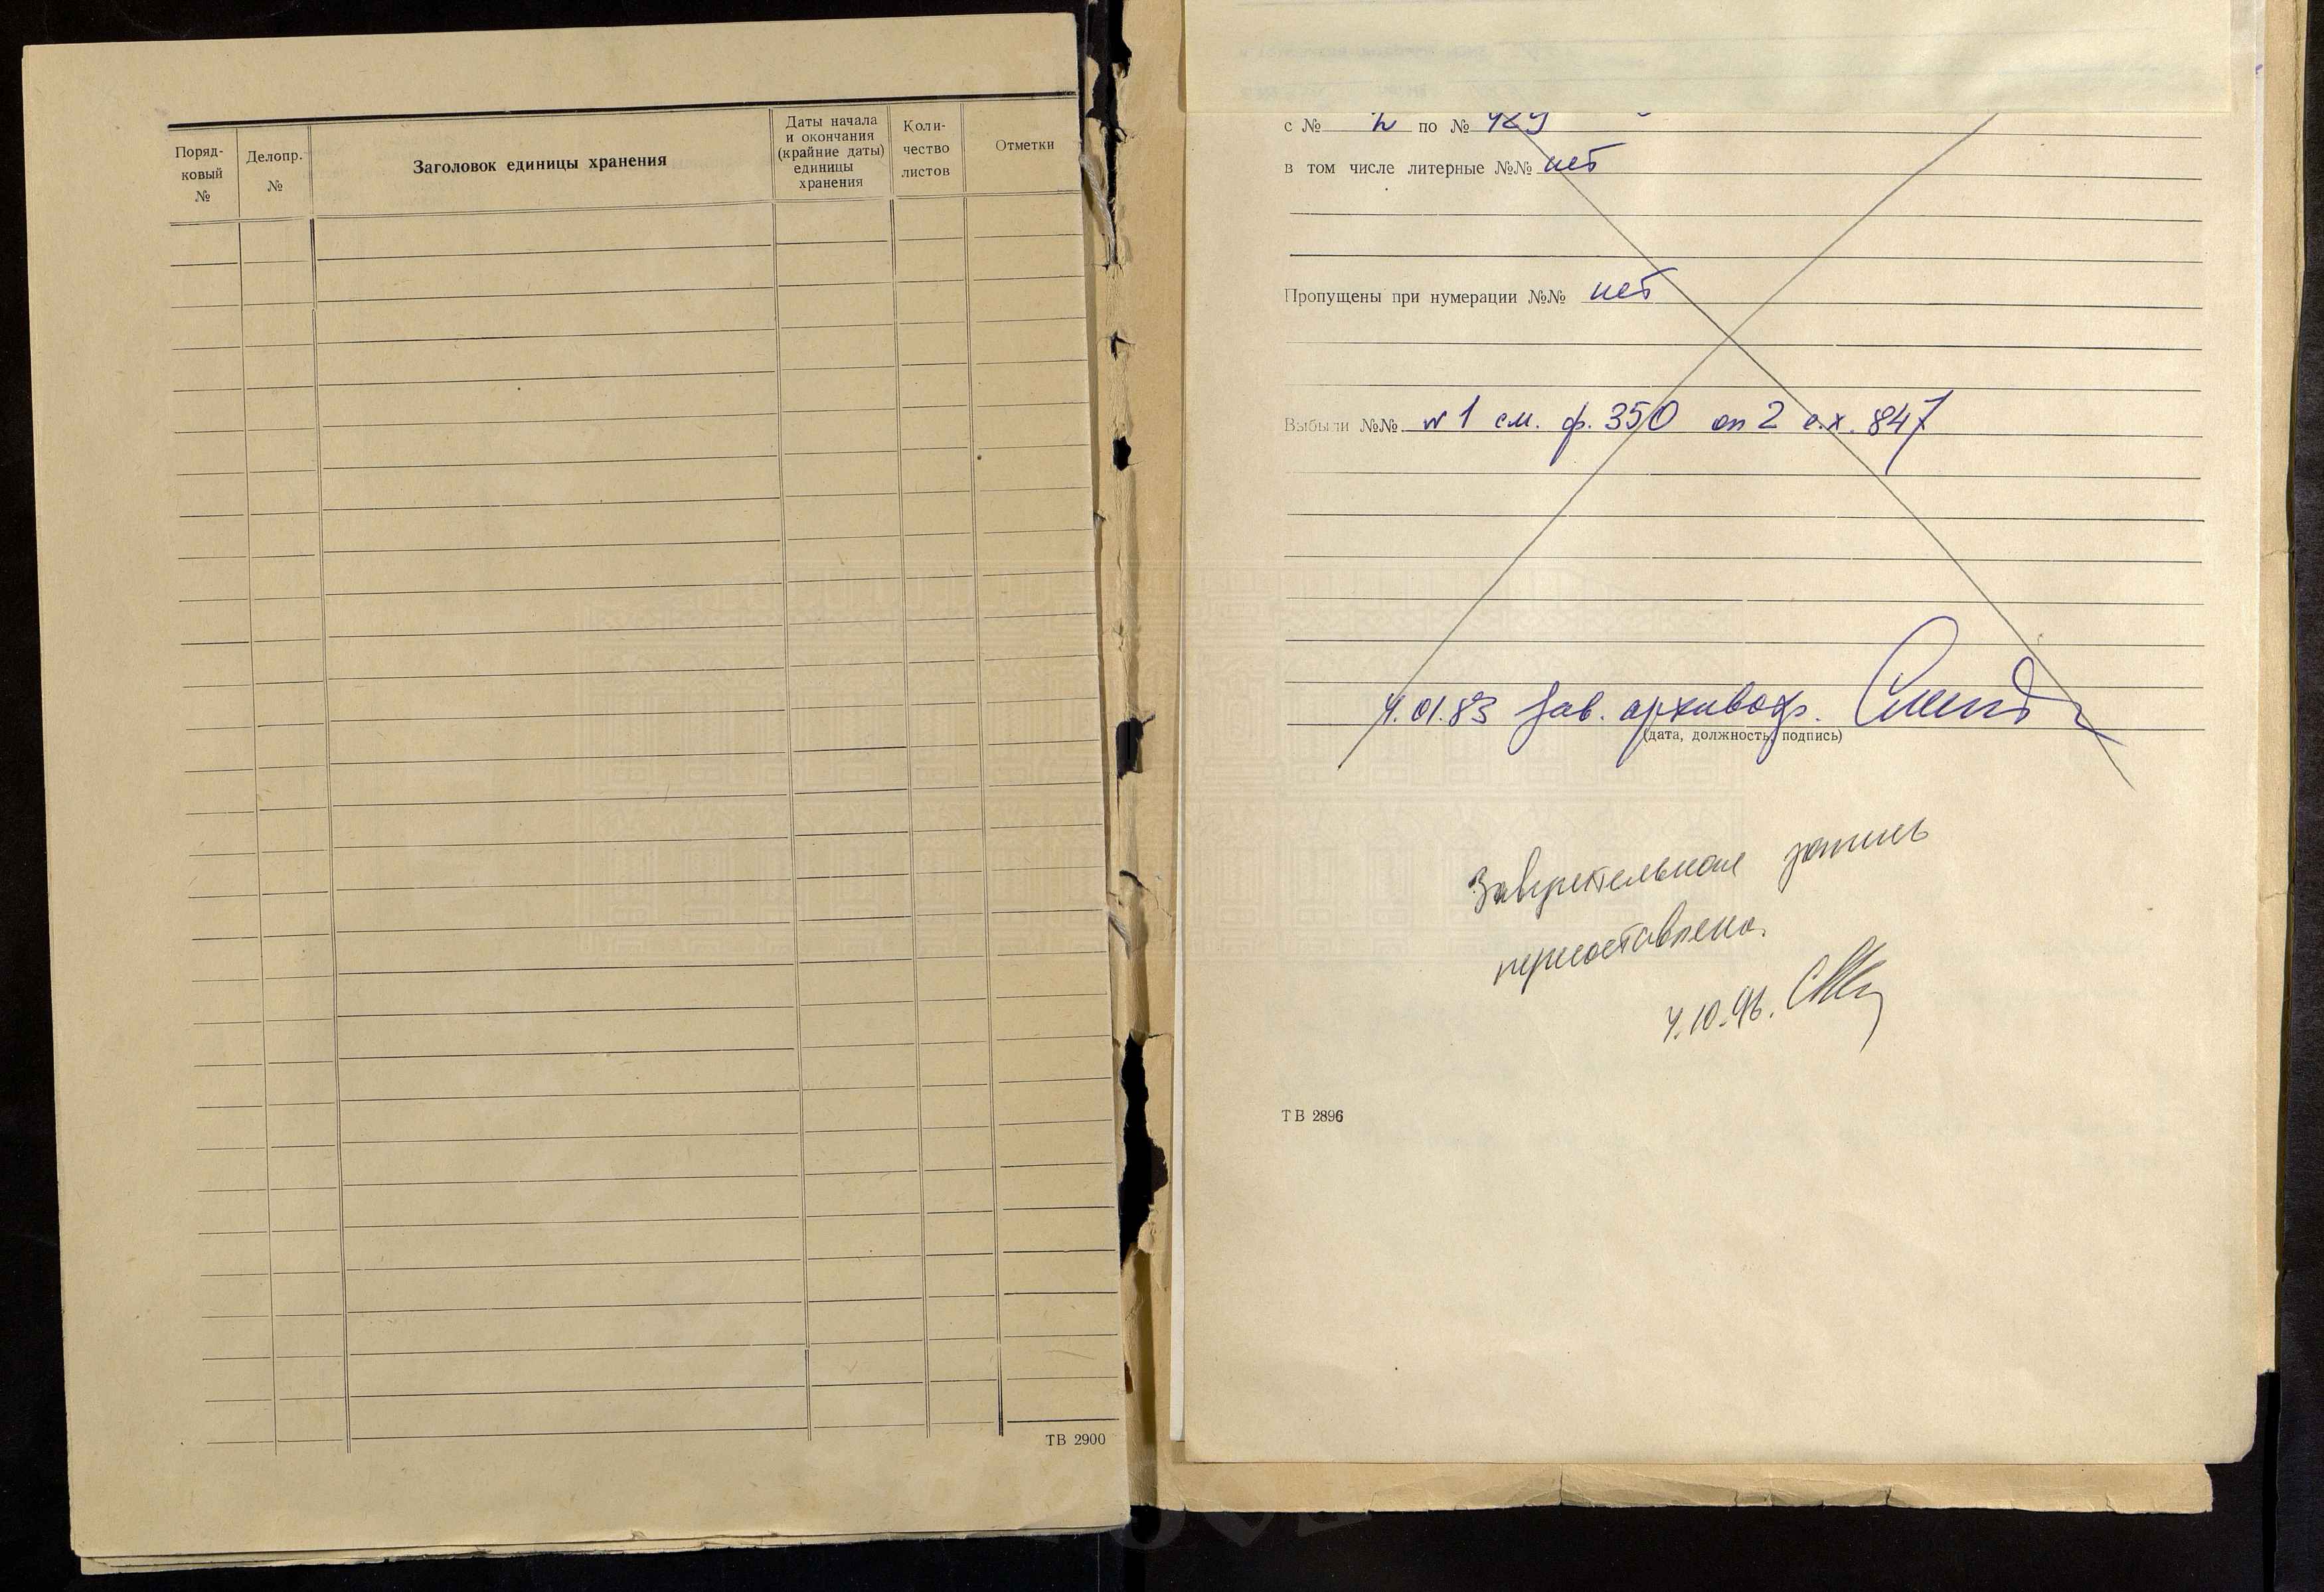 Поряд-
ковый
№
Делопр.
№
Заголовок единицы хранения
Даты начала
и окончания
(крайние даты)
единицы
хранения
Коли-
чество
листов
Отметки
ТВ 2900
с № 2 по № 489
в том числе литерные №№ нет
Пропущены при нумерации №№ нет
Выбыли №№ № 1 см. ф. 350 оп 2 е.х. 847
4.01.83 Зав. архивохр.
(дата, должность, подпись)
Заверительная запись
пересоставлена.
4.10.96.
ТВ 2896